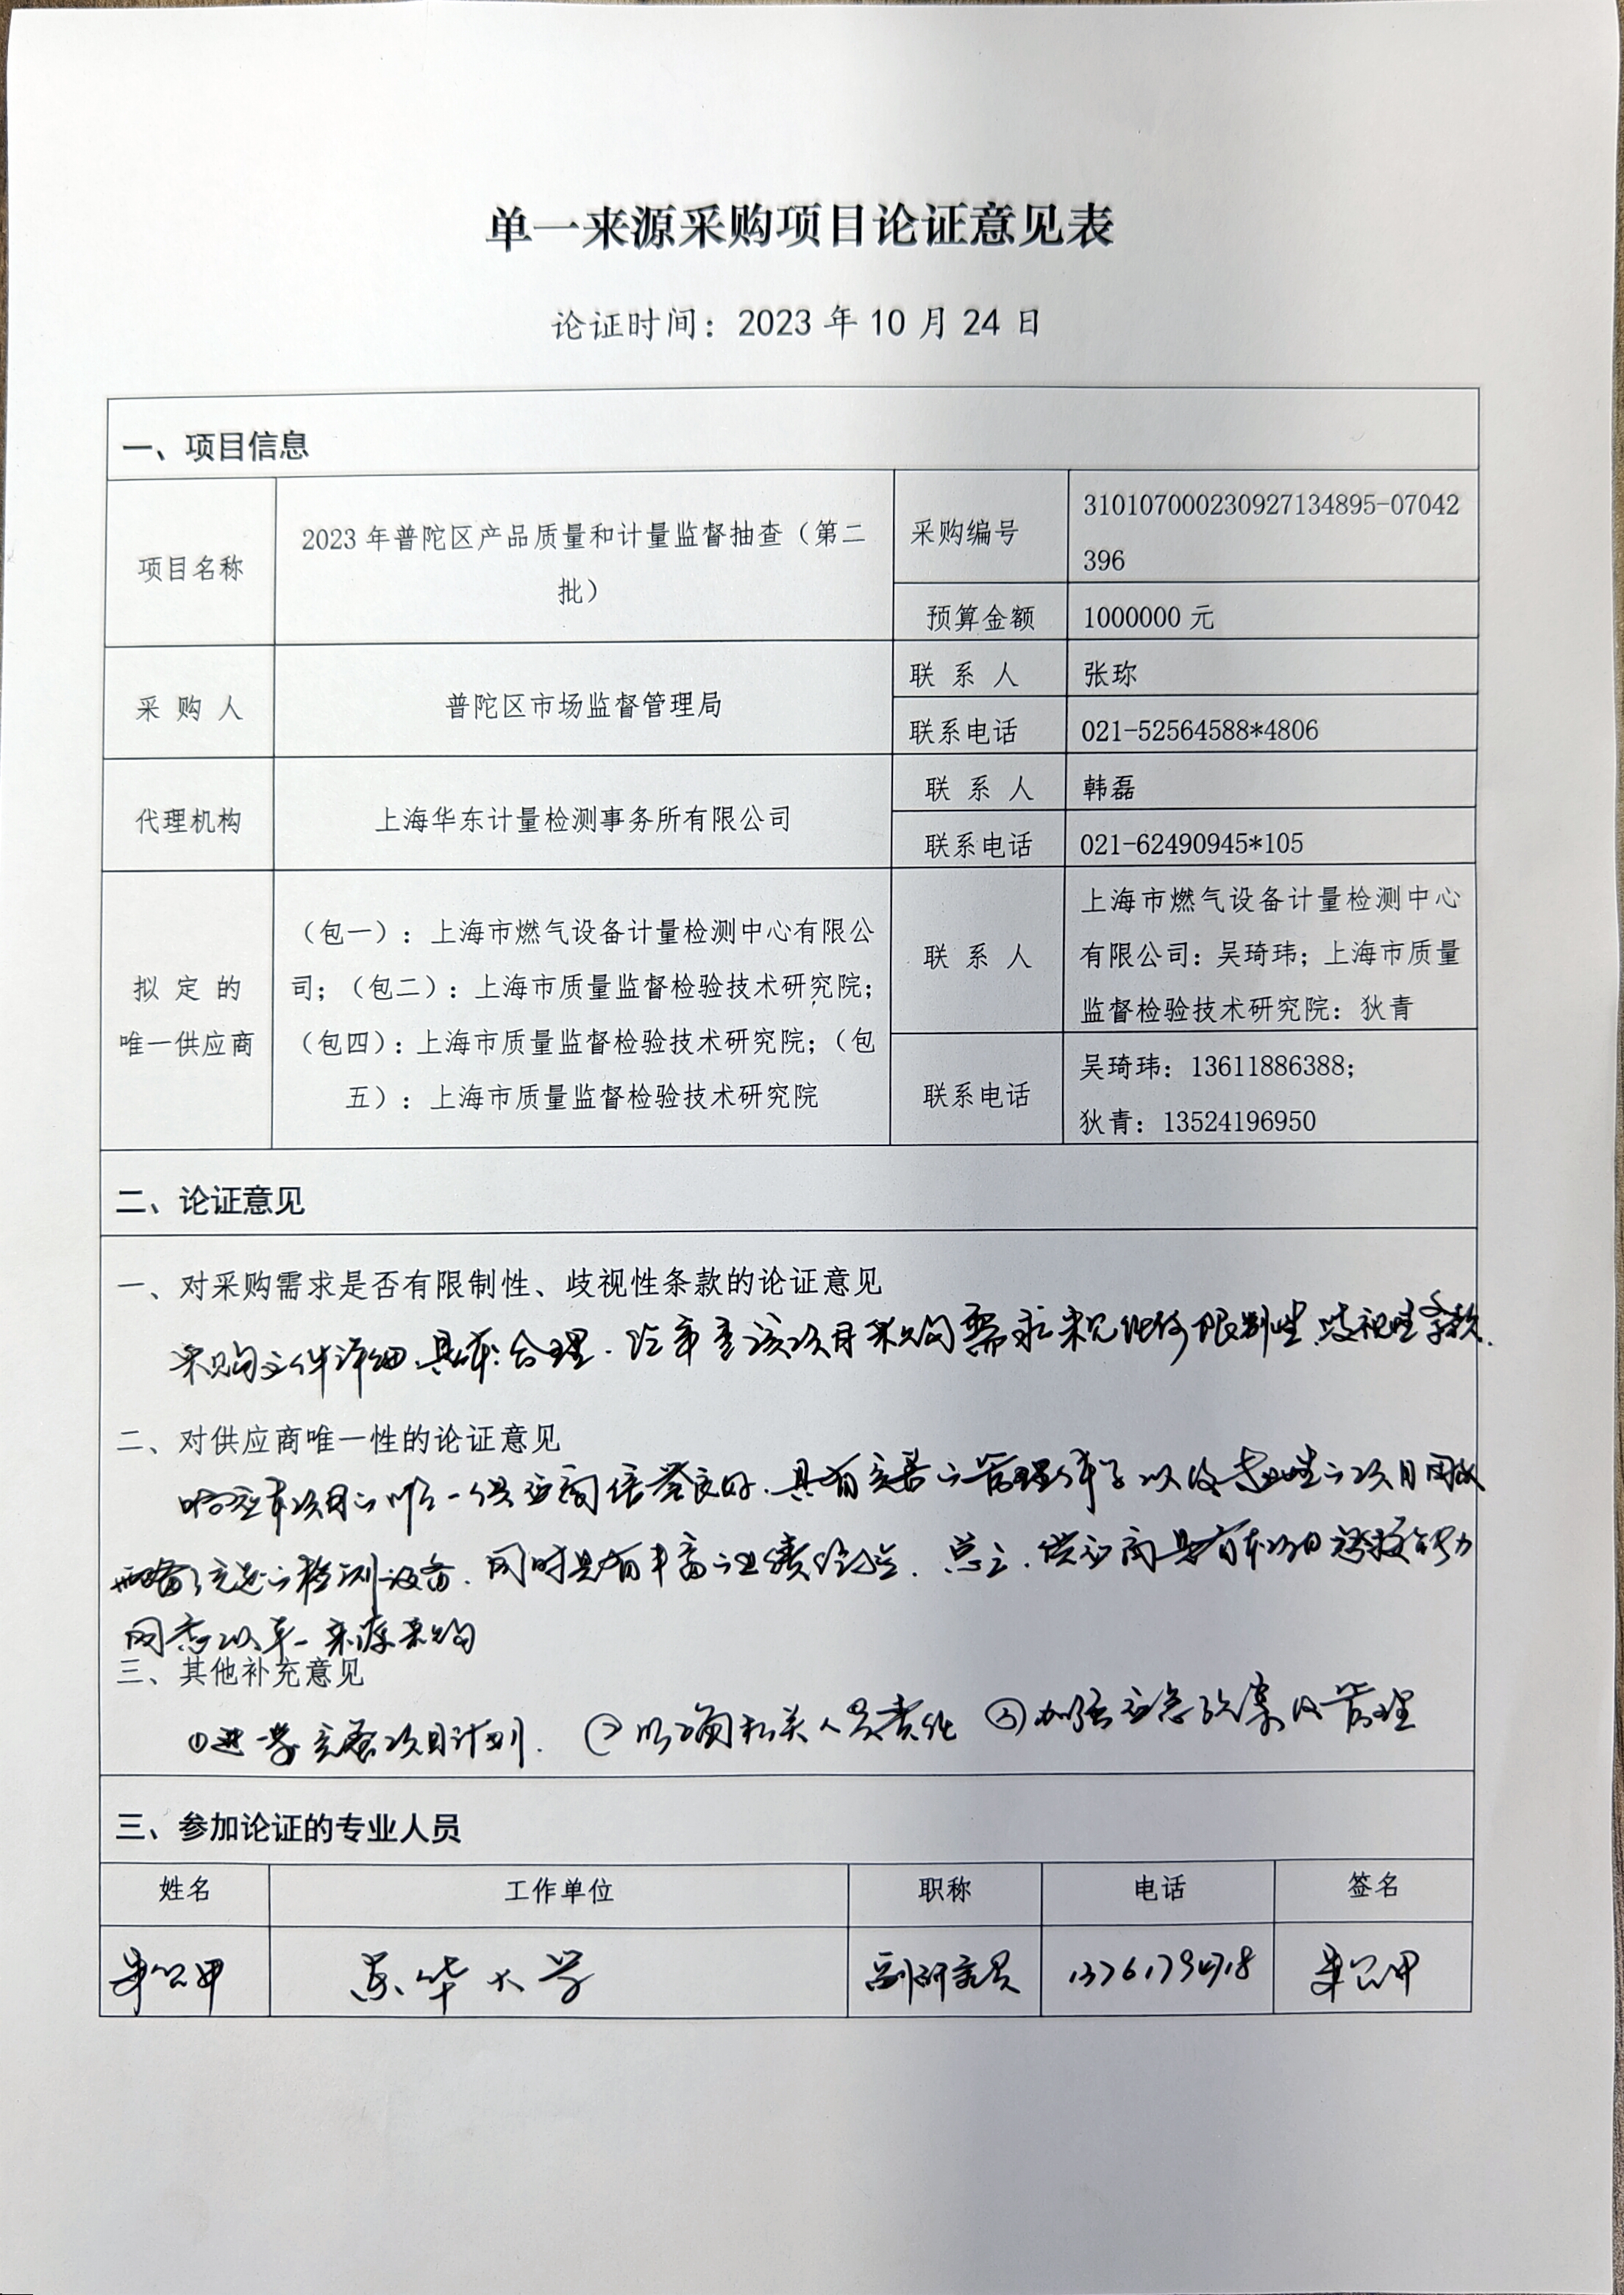 单一来源采购项目论证意见表
论证时间：2023 年 10 月 24 日
一、项目信息
项目名称
2023 年普陀区产品质量和计量监督抽查（第二
批）
采购编号
310107000230927134895-07042
396
预算金额
1000000 元
采 购 人
普陀区市场监督管理局
联 系 人
张珎
联系电话
021-52564588*4806
代理机构
上海华东计量检测事务所有限公司
联 系 人
韩磊
联系电话
021-62490945*105
拟 定 的
唯一供应商
（包一）：上海市燃气设备计量检测中心有限公
司；（包二）：上海市质量监督检验技术研究院；
（包四）：上海市质量监督检验技术研究院；（包
五）：上海市质量监督检验技术研究院
联 系 人
上海市燃气设备计量检测中心
有限公司：吴琦玮；上海市质量
监督检验技术研究院：狄青
联系电话
吴琦玮：13611886388；
狄青：13524196950
二、论证意见
一、对采购需求是否有限制性、歧视性条款的论证意见
采购文件详细、具体、合理. 经审查该项目采购需求未见任何限制性、歧视性条款.
二、对供应商唯一性的论证意见
响应本项目的唯一供应商信誉良好、具有完善的管理体系以及专业性的项目团队
配备了先进的检测设备、同时具有丰富的业绩经验. 总之、供应商具有本项目承接能力
同意以单一来源采购
三、其他补充意见
①进一步完善项目计划. ②明确相关人员责任 ③加强应急预案及管理
三、参加论证的专业人员
姓名
工作单位
职称
电话
签名
东华大学
副研究员